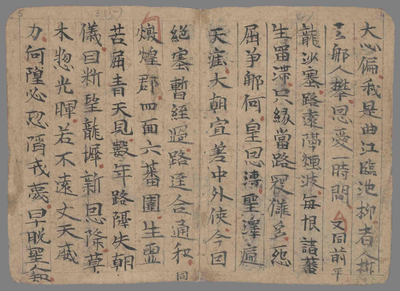 大心偏我是曲江臨池柳者人折
去那人攀恩愛一時間 又同前平
龍沙塞路遠隔煙波每恨諸蕃
生留滯只緣當路寇讎多怨
屈爭那何皇恩溥聖澤遍
天涯大朝宣差中外使今因
絕塞暫經過路遠合通和 同
燉煌郡四面六蕃圍生靈
苦屈青天見數年路隔失朝
儀目斷望龍墀新恩降草
木惣光暉若不遠丈天威
力何隍必恐陷戎夷晚聖